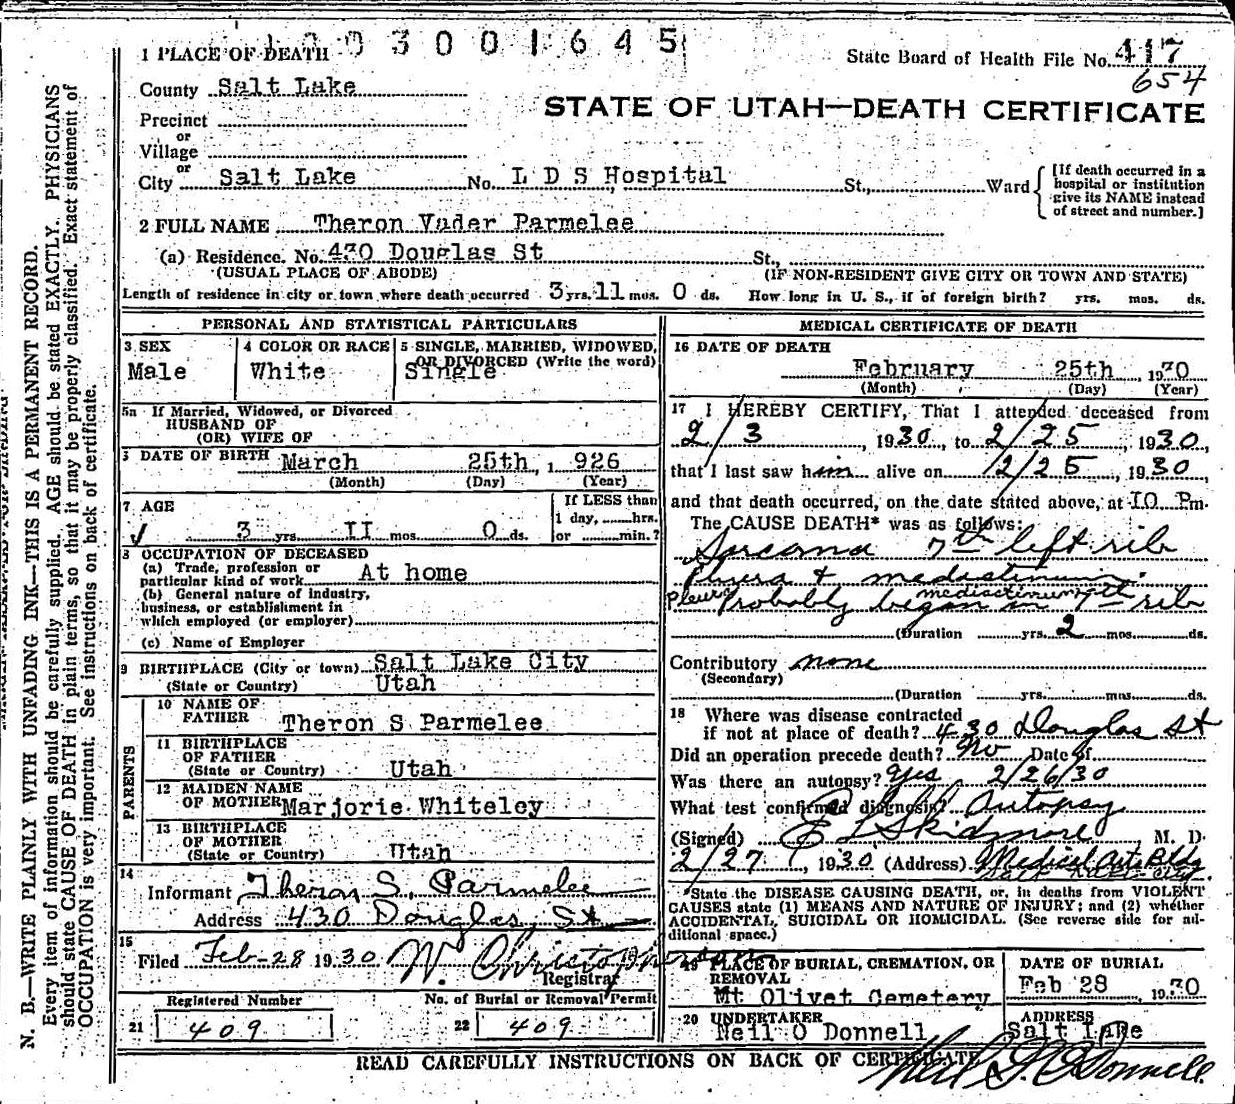 3001645
1 PLACE OF DEATH
State Board of Health File No. 417
654
County Salt Lake
STATE OF UTAH—DEATH CERTIFICATE
Precinct
or
Village
or
City Salt Lake No. L D S Hospital St., Ward
[If death occurred in a hospital or institution give its NAME instead of street and number.]
2 FULL NAME Theron Vader Parmelee
(a) Residence. No. 430 Douglas St St.,
(USUAL PLACE OF ABODE) (IF NON-RESIDENT GIVE CITY OR TOWN AND STATE)
Length of residence in city or town where death occurred 3 yrs. 11 mos. 0 ds. How long in U. S., if of foreign birth? yrs. mos. ds.
PERSONAL AND STATISTICAL PARTICULARS
3 SEX
Male
4 COLOR OR RACE
White
5 SINGLE, MARRIED, WIDOWED,
OR DIVORCED (Write the word)
Single
5a If Married, Widowed, or Divorced
HUSBAND OF
(OR) WIFE OF
DATE OF BIRTH March 25th, 1926
(Month) (Day) (Year)
7 AGE
3 yrs. II mos. 0 ds.
If LESS than
1 day, hrs.
or min.?
8 OCCUPATION OF DECEASED
(a) Trade, profession or
particular kind of work At home
(b) General nature of industry,
business, or establishment in
which employed (or employer)
(c) Name of Employer
9 BIRTHPLACE (City or town) Salt Lake City
(State or Country) Utah
PARENTS
10 NAME OF
FATHER Theron S Parmelee
11 BIRTHPLACE
OF FATHER
(State or Country) Utah
12 MAIDEN NAME
OF MOTHER Marjorie Whiteley
13 BIRTHPLACE
OF MOTHER
(State or Country) Utah
14
Informant Theron S. Parmelee
Address 430 Douglas St
15
Filed Feb-28 1930 W. Christopherson
Registrar
Registered Number
21 409
No. of Burial or Removal Permit
22 409
MEDICAL CERTIFICATE OF DEATH
16 DATE OF DEATH
February 25th, 1930
(Month) (Day) (Year)
17 I HEREBY CERTIFY, That I attended deceased from
2/3, 1930, to 2/25, 1930,
that I last saw him alive on 2/25, 1930,
and that death occurred, on the date stated above, at 10 Pm.
The CAUSE DEATH* was as follows:
Sarcoma 7th left rib
Pleura & mediastinum.
Pleura mediastinum
Probably began in 7th rib
(Duration yrs. 2 mos. ds.
Contributory none
(Secondary)
(Duration yrs. mos. ds.
18 Where was disease contracted
if not at place of death? 430 Douglas St
Did an operation precede death? No Date of
Was there an autopsy? Yes 2/26/30
What test confirmed diagnosis? Autopsy
(Signed) E L Skidmore M. D.
2/27, 1930 (Address) Medical Arts Bldg
*State the DISEASE CAUSING DEATH, or, in deaths from VIOLENT
CAUSES state (1) MEANS AND NATURE OF INJURY; and (2) whether
ACCIDENTAL, SUICIDAL OR HOMICIDAL. (See reverse side for additional space.)
19 PLACE OF BURIAL, CREMATION, OR
REMOVAL
Mt Olivet Cemetery
DATE OF BURIAL
Feb 28, 1930
20 UNDERTAKER
Neil O Donnell
ADDRESS
Salt Lake
READ CAREFULLY INSTRUCTIONS ON BACK OF CERTIFICATE
N. B.—WRITE PLAINLY WITH UNFADING INK—THIS IS A PERMANENT RECORD.
Every item of information should be carefully supplied. AGE should be stated EXACTLY. PHYSICIANS
should state CAUSE OF DEATH in plain terms, so that it may be properly classified. Exact statement of
OCCUPATION is very important. See instructions on back of certificate.